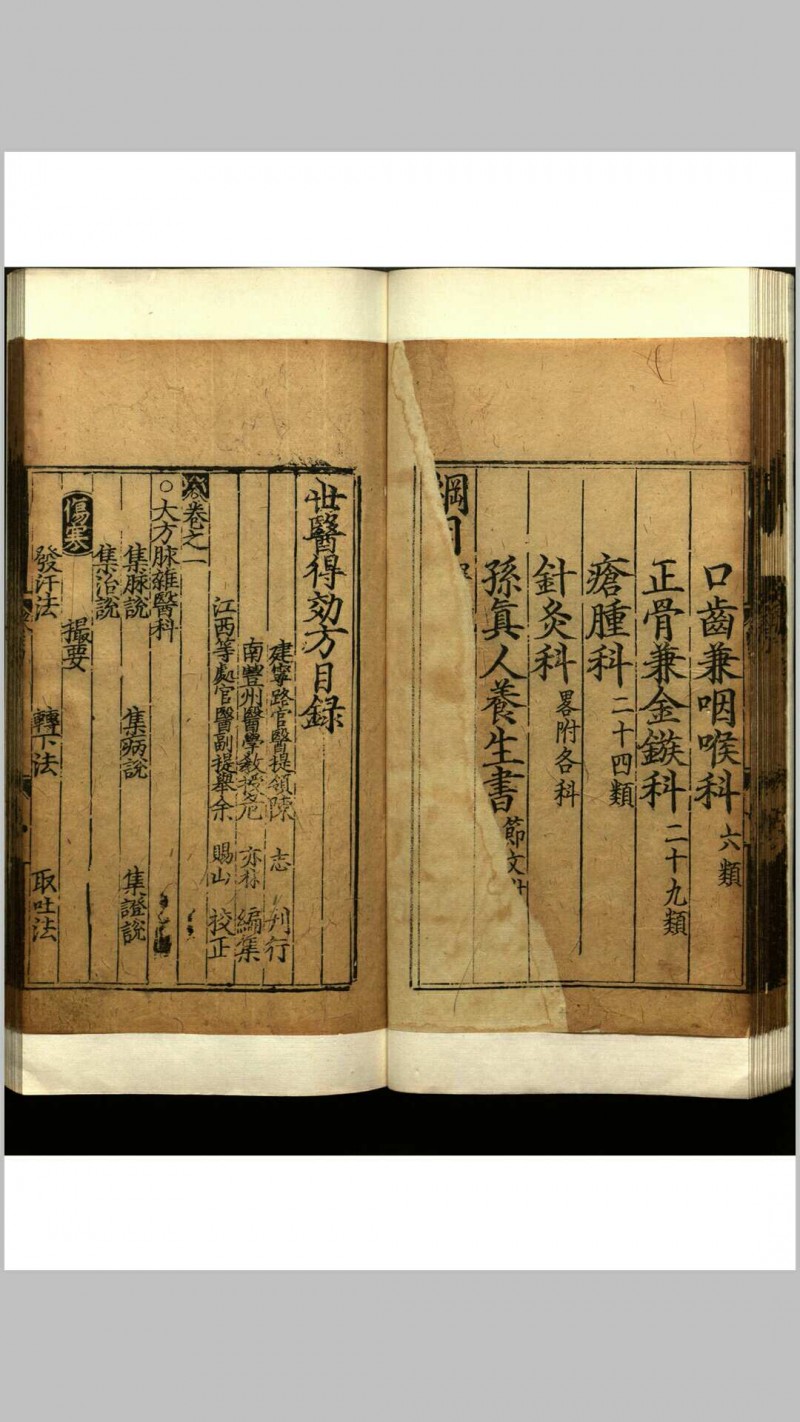 口齒兼咽喉科 六類
正骨兼金鏃科 二十九類
瘡腫科 二十四類
針灸科 畧附各科
孫眞人養生書 節文
綱目
世醫得効方目録
建寧路官醫提領陳 志 刋行
南豐州醫學教授危 亦林 編集
江西等處官醫副提舉余 賜山 校正
卷之一
○大方脉雜醫科
集脉說 集病說 集證說
集治說
傷寒 撮要
發汗法 轉下法 取吐法